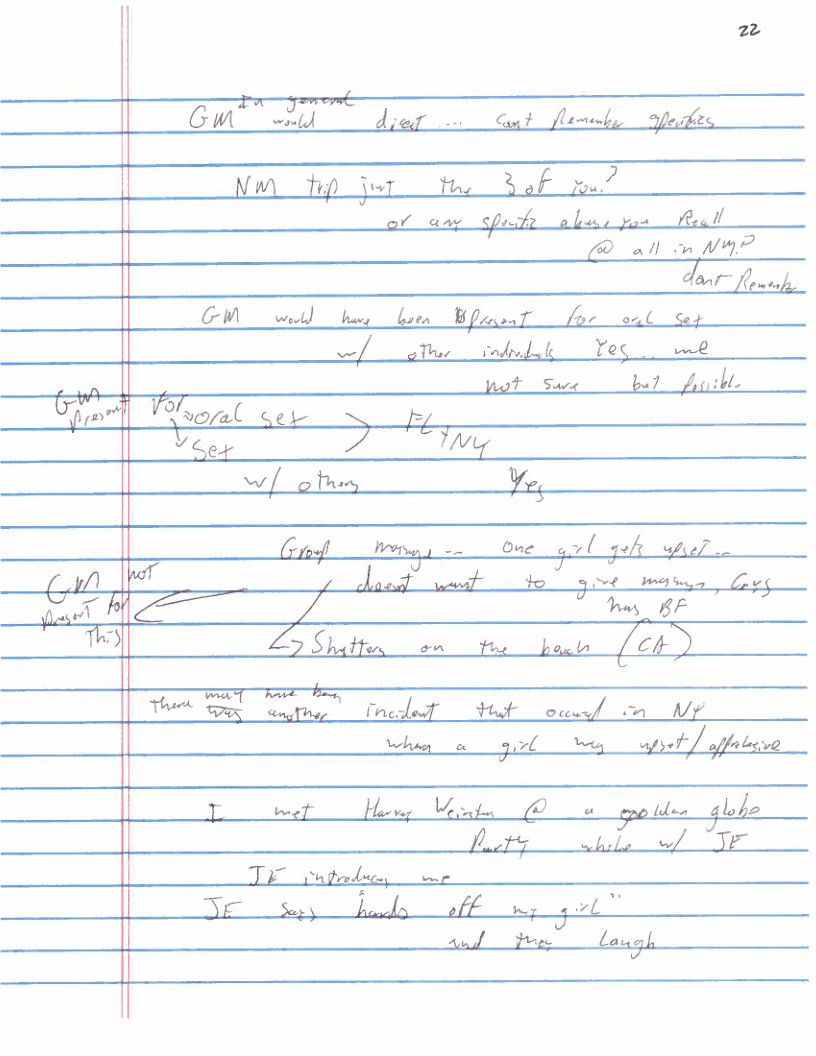 22
In general
GM would direct ... Cant Remember specifics
NM trip just the 3 of you?
or any specific abuse you Recall
@ all in NM?
dont Remember
GM would have been present for oral sex
w/ other individuals Yes... me
not sure but possible
GM present for oral sex > FL + NY
Sex
w/ others Yes
Group massage -- One girl gets upset --
GM not present for This
doesnt want to give massage, Crys
has BF
Shutters on the beach (CA)
may have been
There was another incident that occured in NY
where a girl was upset/
I met Harvey Weinstein @ a golden globe
Party while w/ JE
JE introduces me
JE says "hands off my girl"
and they Laugh